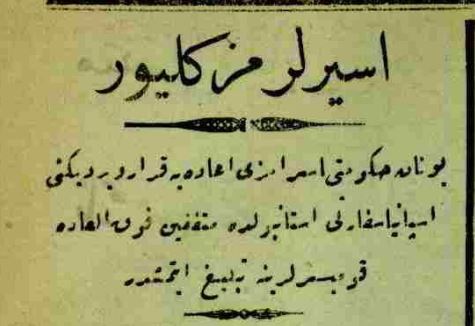 اسيرلرمز كليور
يونان حكومتى اسرامزى اعاده يه قرار ويرديكنى
اسپانيا سفارتى استانبولده متفقين فوق العاده
قوميسرلرينه تبليغ ايتمشدر